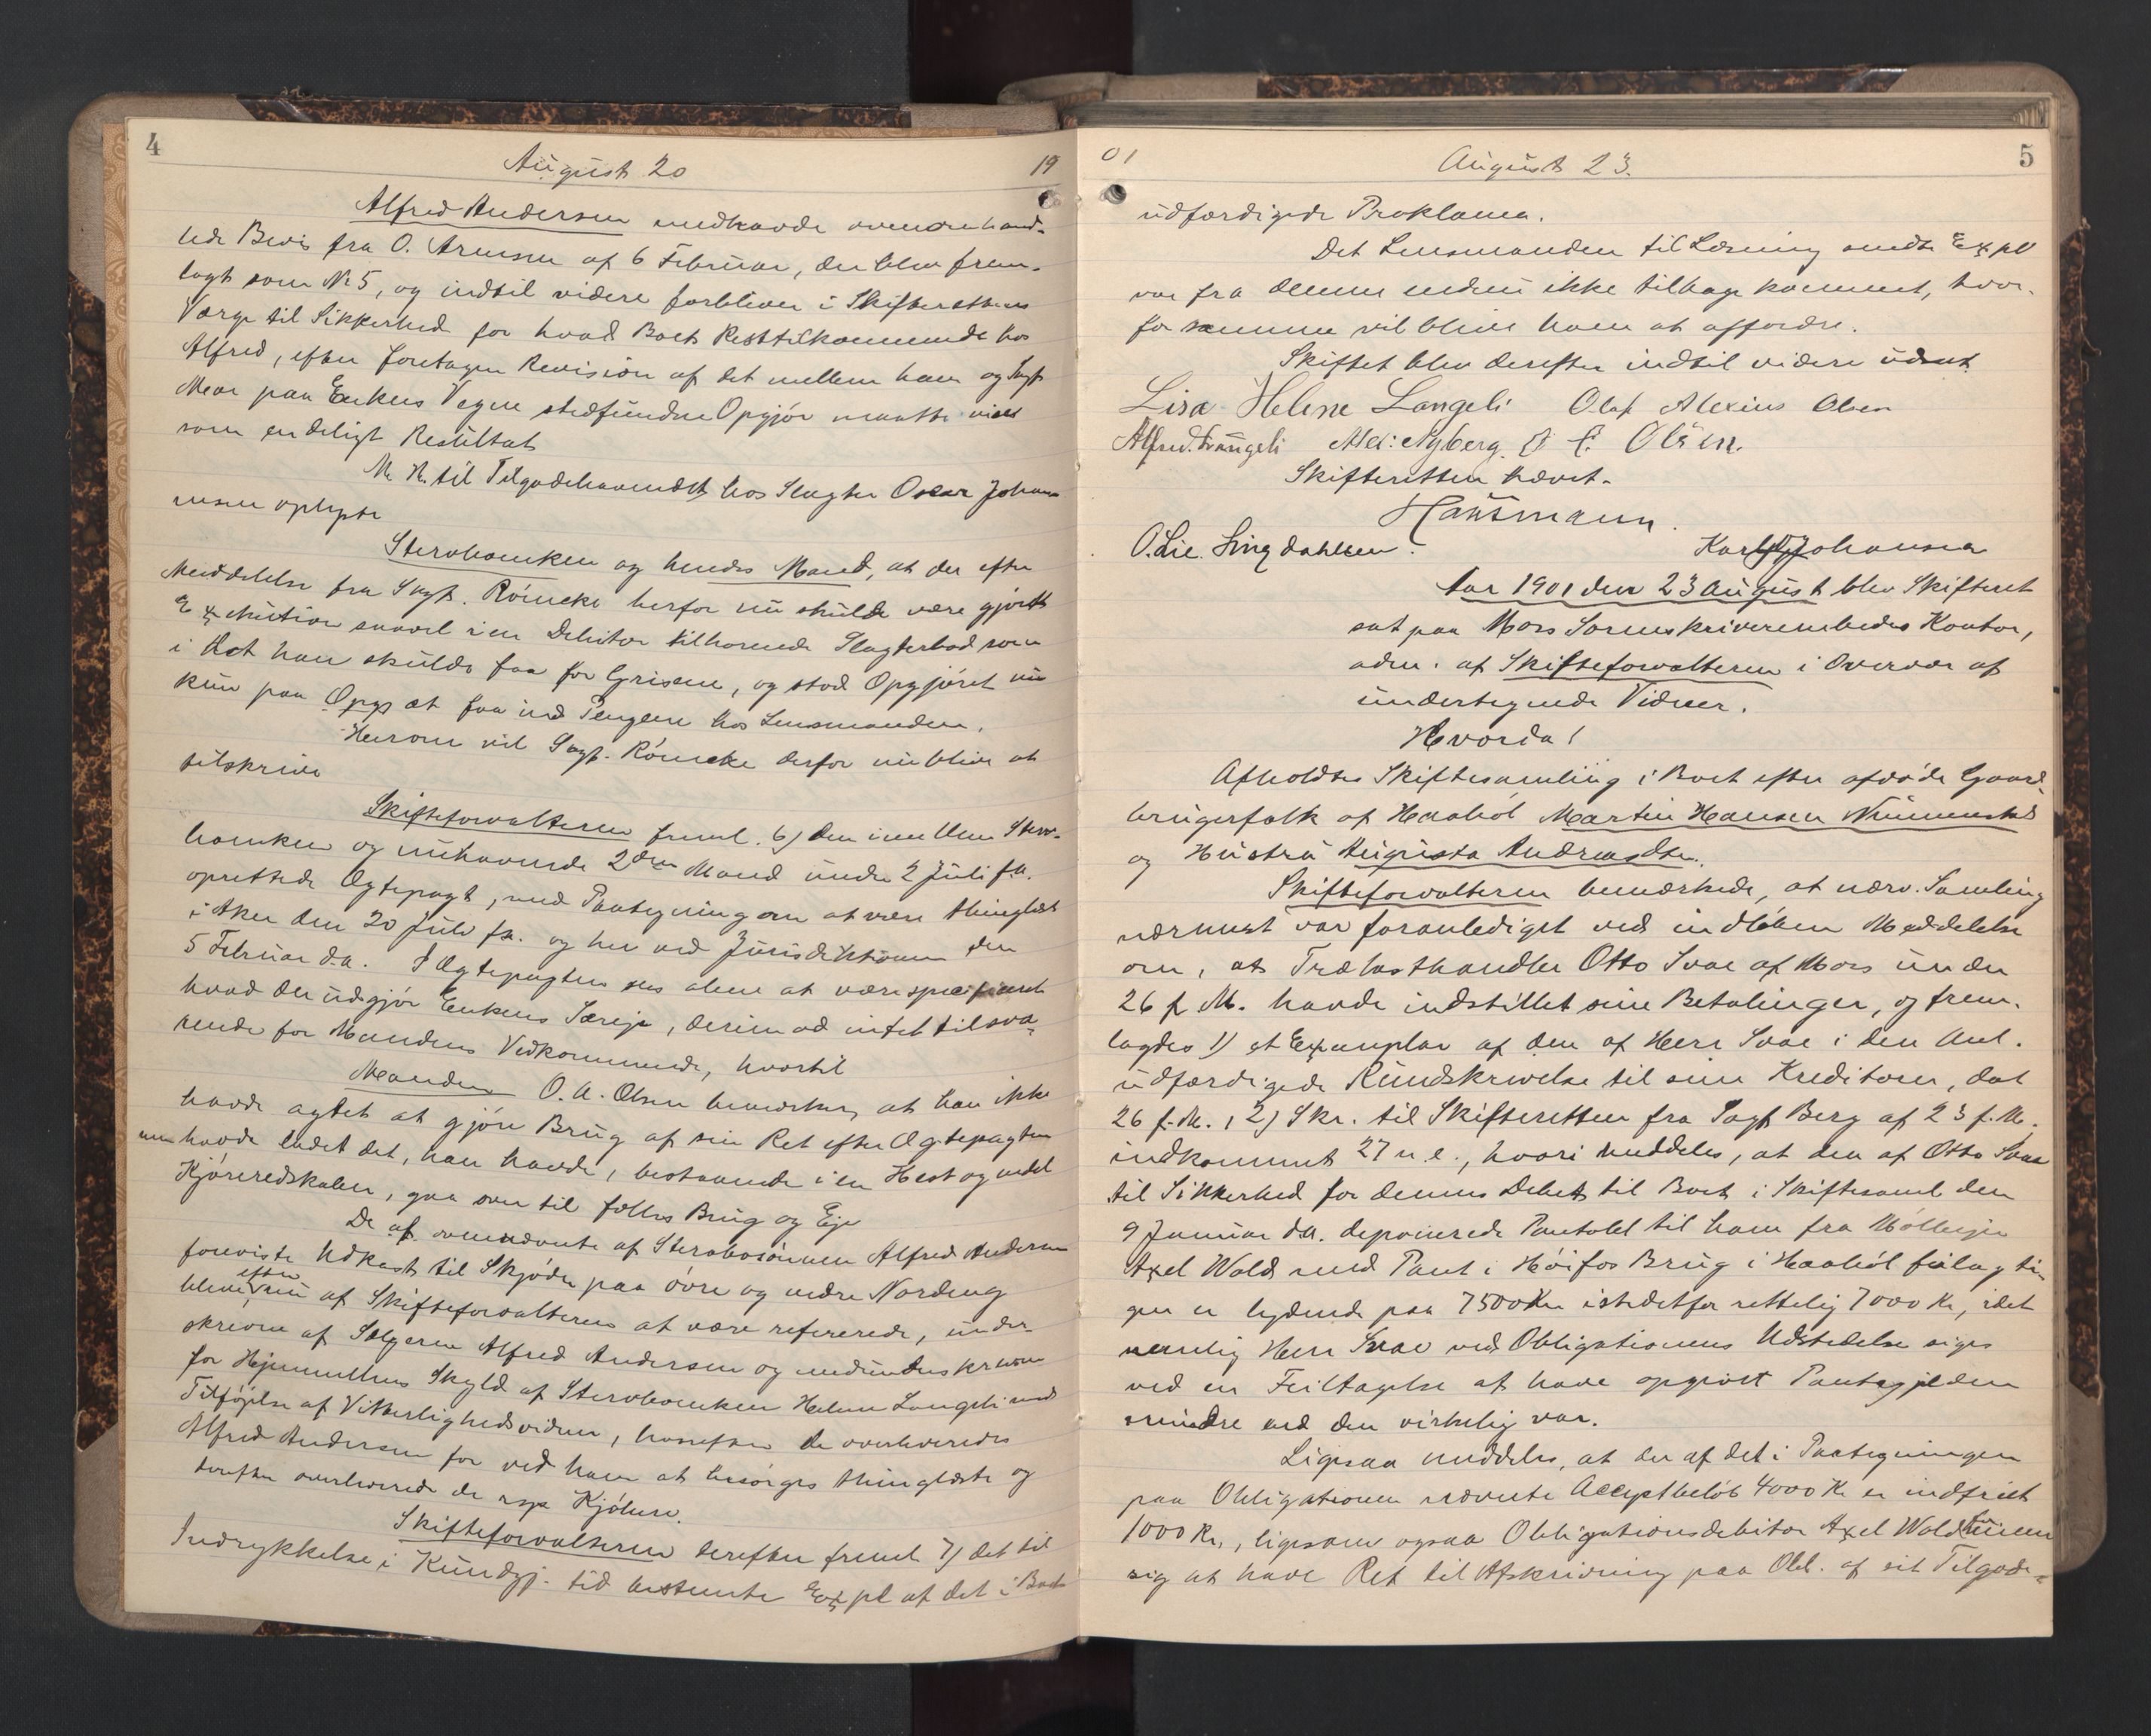 4
August 20
19
Alfred Andersen medhavde ovenanhand-
lede Bevis fra O. Arnesen af 6 Februar, der blev frem-
lagt som № 5, og indtil videre forbliver i Skifterettens
Værge til Sikkerhed for hvad Boets Resttilkommende hos
Alfred, efter foretagen Revision af det mellem ham og Sagf.
Moe paa Enkens Vegne stedfundne Opgjør maatte vise
som endeligt Resultat
M. H. til Tilgodehavendet hos Slagter Oscar Johan-
nesen oplyste
Stervboenken og hendes Mand, at der efter
Meddelelse fra Sagf. Röncke herfor nu skulde være gjort
Exekution saavel i en Debitor tilhørende Slagterbod som
i det han skulde faa for Grisene, og stod Opgjøret nu
kun paa Opg. at faa ind Pengene hos Lensmanden.
Herom vil Sagf. Röncke derfor nu blive at
tilskrive
Skifteforvalteren freml. 6) den imellem Sterv-
boenken og nuhavende 2den Mand under 2 Juli f.a.
oprettede Ægtepagt, med Paategning om at være thinglæst
i Aker den 20 Juli f.a. og her ved Jurisdiktionen den
5 Februar d.a. I Ægtepagten sees alene at være specificeret
hvad der udgjør Enkens Særeje, derimod intet tilsva-
rende for Mandens Vedkommende, hvortil
Manden O. A. Olsen bemærker, at han ikke
havde agtet at gjøre Brug af sin Ret efter Ægtepagten
men havde ladet det, han havde, bestaaende i en Hest og endel
Kjøreredskaber, gaa over til fælles Brug og Eje
De af ovennævnte af Stervbosønnen Alfred Andersen
foreviste Udkast til Skjøder paa øvre og nedre Nordeng
blev efter nu af Skifteforvalteren at være refererede, under-
skrevne af Sælgeren Alfred Andersen og medunderskrevne
for Hjemmelens Skyld af Stervboenken Helene Langeli med
Tilføjelse af Vitterlighedsvidner, hvorefter de overleveredes
Alfred Andersen for ved ham at besørges thinglæste og
derefter overleverede de resp. Kjøbere.
Skifteforvalteren derefter freml. 7) det til
Indrykkelse i Kundgj. tid. bestemte Expl af det i Boet
01
August 23.
5
udfærdigede Proklama.
Det Lensmanden til Læsning sendte Expl
var fra denne endnu ikke tilbage kommet, hvor-
for samme vil blive ham at affordre.
Skiftet blev derefter indtil videre udsat.
Lisa Helene Langeli Olaf Alexius Olsen
Alfred Langeli Alex: Nyberg. O. C. Olsen.
Skifteretten hævet.
Hansmann.
O. Lie. Singdahlsen. Karl Johansen
Aar 1901 den 23 August blev Skifteret
sat paa Moss Sorenskriverembedes Kontor,
adm. af Skifteforvalteren i Overvær af
undertegnede Vidner.
Hvorda!
Afholdtes Skiftesamling i Boet efter afdøde Gaard-
brugerfolk af Haabøl Martin Hansen Nummestad
og Hustru Augusta Andreasdtr.
Skifteforvalteren bemærkede, at nærv. Samling
nærmest var foranlediget ved indløben Meddelelse
om, at Trælasthandler Otto Svae af Moss under
26 f. M. havde indstillet sine Betalinger, og frem-
lagdes 1) et Exemplar af den af Herr Svae i den Anl.
udfærdigede Rundskrivelse til sine Kreditorer, dat
26 f. M., 2) Skr. til Skifteretten fra Sagf Berg af 23 f. M.
indkommet 27 n. e., hvori meddeles, at den af Otto Svae
til Sikkerhed for dennes Debet til Boet i Skiftesaml den
9 Januar d.a. deponerede Pantobl til ham fra Mölleejer
Axel Wold med Pant i Höifos Brug i Haaböl feilagti-
gen er lydende paa 7500 Kr istedetfor rettelig 7000 Kr, idet
nemlig Herr Svae ved Obligationens Udstedelse siges
ved en Feiltagelse at have opgivet Pantegjælden
mindre end den virkelig var.
Ligesaa meddeles, at der af det i Paategningen
paa Obligationen nævnte Acceptbeløb 4000 Kr er indfriet
1000 Kr., ligesom ogsaa Obligationsdebitor Axel Wold mener
sig at have Ret til Afskrivning paa Obl. af sit Tilgode-